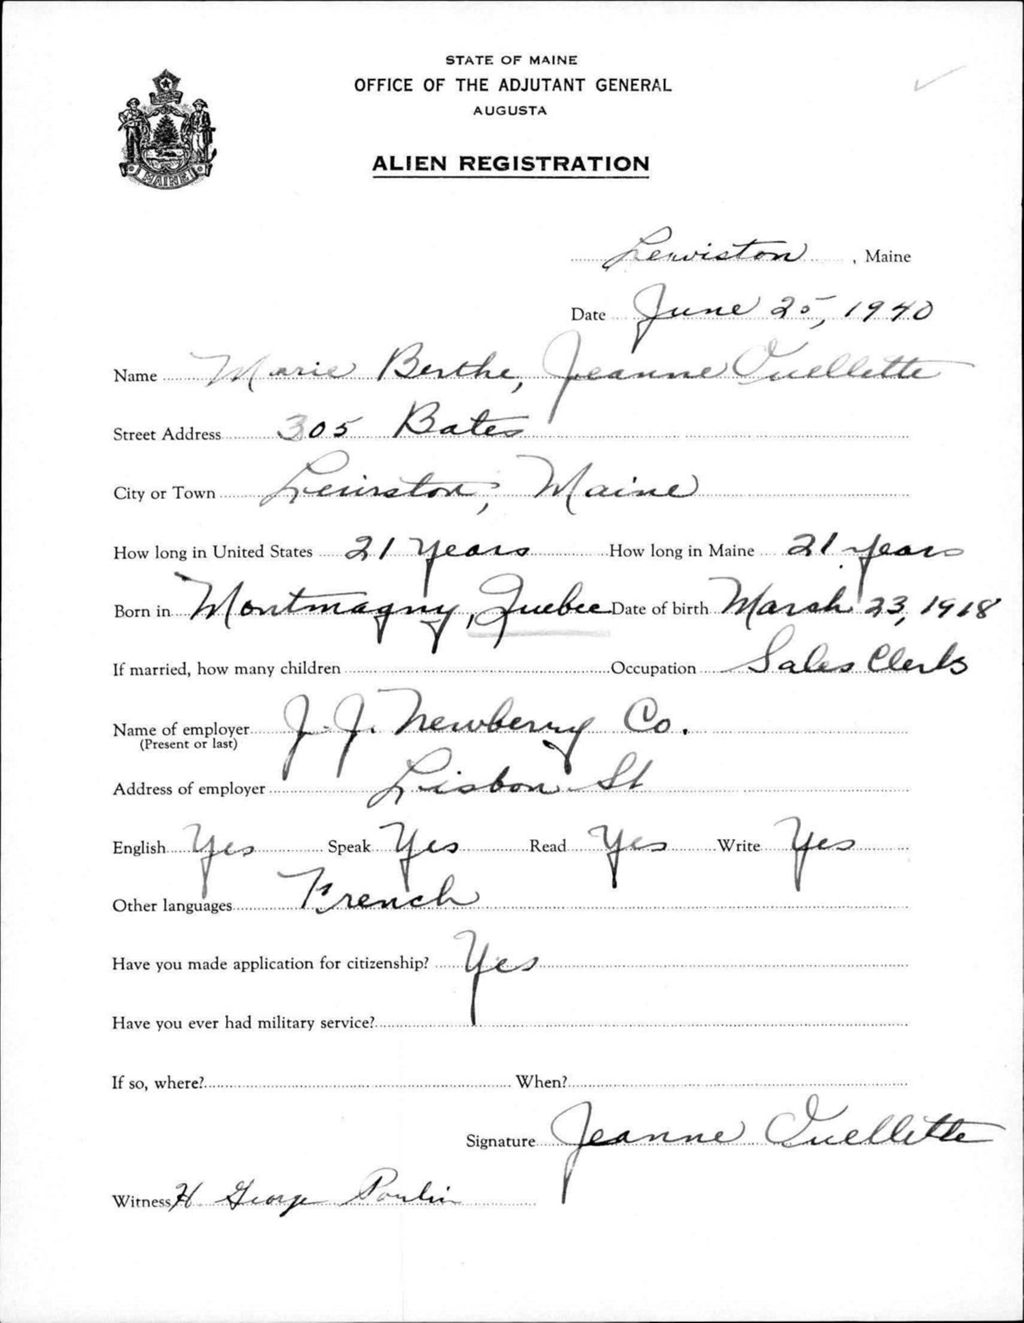 STATE OF MAINE
OFFICE OF THE ADJUTANT GENERAL
AUGUSTA
MAINE
ALIEN REGISTRATION
Lewiston, Maine
Date June 25, 1940
Name Marie Berthe, Jeanne Ouellette
Street Address 305 Bates
City or Town Lewiston, Maine
How long in United States 21 years How long in Maine 21 years
Born in Montmagny, Quebec Date of birth March 23, 1918
If married, how many children Occupation Sales Clerk
Name of employer J. J. Newberry Co.
(Present or last)
Address of employer Lisbon St
English Yes Speak Yes Read Yes Write Yes
Other languages French
Have you made application for citizenship? Yes
Have you ever had military service?
If so, where? When?
Signature Jeanne Ouellette
Witness H. George Poulin